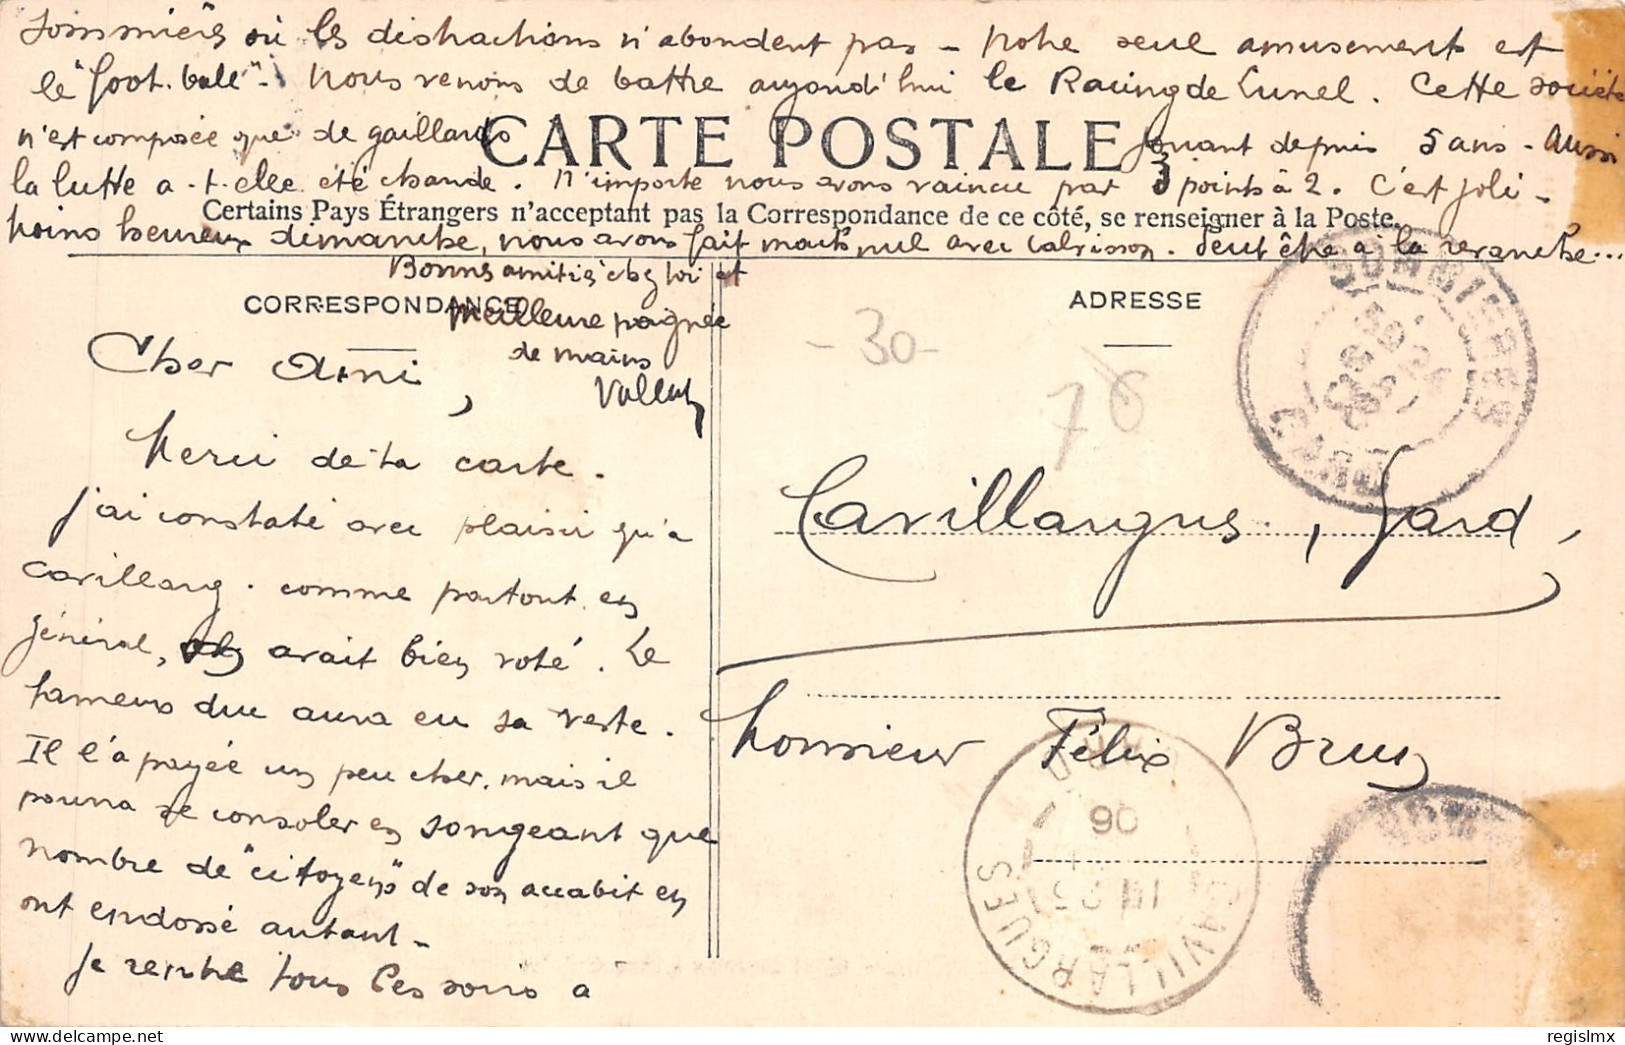 Sommières où les distractions n'abondent pas - notre seul amusement est
le "foot-ball" - Nous venons de battre aujourd'hui le Racing de Lunel. Cette société
n'est composée que de gaillards jouant depuis 5 ans - Aussi
CARTE POSTALE
la lutte a-t-elle été chaude. N'importe nous avons vaincu par 3 points à 2. C'est joli -
Certains Pays Étrangers n'acceptant pas la Correspondance de ce côté, se renseigner à la Poste.
Moins heureux dimanche, nous avons fait match nul avec Calvisson. Peut être a la revanche...
Bonnes amitiés chez toi et
meilleure poignée
de mains
CORRESPONDANCE
Cher Ami,
Merci de ta carte.
J'ai constaté avec plaisir qu'a
Cavillarg. comme partout en
général, avait bien voté. Le
fameux duc aura eu sa veste.
Il l'a payée un peu cher, mais il
pourra se consoler en songeant que
nombre de "citoyens" de son accabit en
ont endossé autant -
Je rentre tous les soirs a
ADRESSE
-30-
76
SOMMIÈRES
GARD
Cavillargues, Gard,
Monsieur Félix Brun
CAVILLARGUES
06
SOMM
regislmx